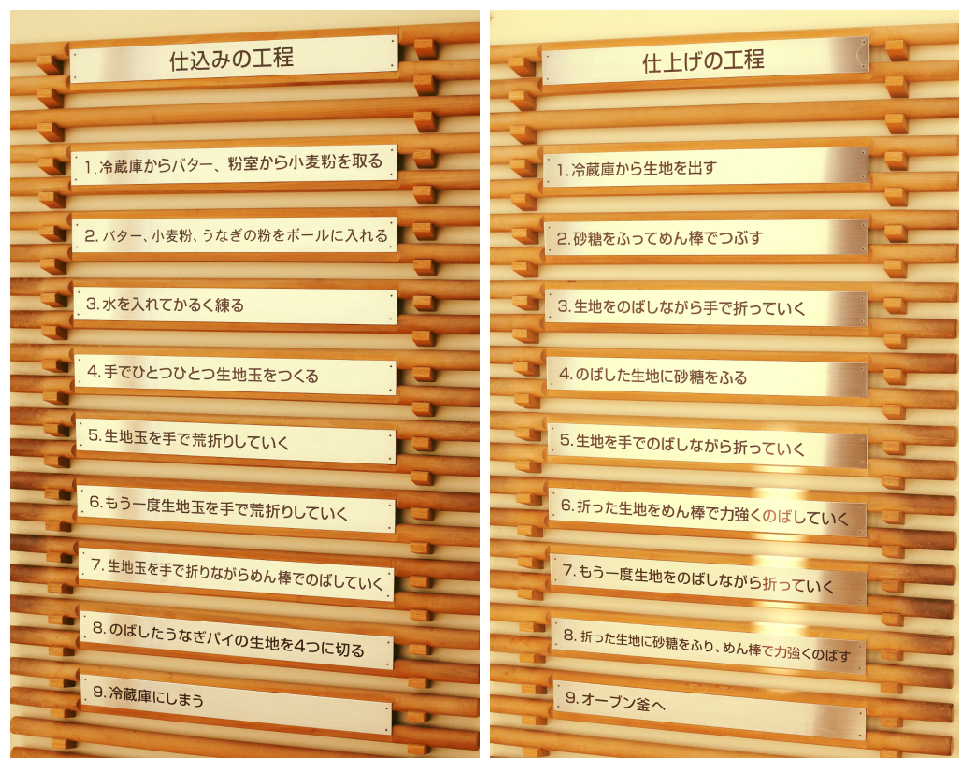 仕込みの工程
1.冷蔵庫からバター、粉室から小麦粉を取る
2.バター、小麦粉、うなぎの粉をボールに入れる
3.水を入れてかるく練る
4.手でひとつひとつ生地玉をつくる
5.生地玉を手で荒折りしていく
6.もう一度生地玉を手で荒折りしていく
7.生地玉を手で折りながらめん棒でのばしていく
8.のばしたうなぎパイの生地を4つに切る
9.冷蔵庫にしまう
仕上げの工程
1.冷蔵庫から生地を出す
2.砂糖をふってめん棒でつぶす
3.生地をのばしながら手で折っていく
4.のばした生地に砂糖をふる
5.生地を手でのばしながら折っていく
6.折った生地をめん棒で力強くのばしていく
7.もう一度生地をのばしながら折っていく
8.折った生地に砂糖をふり、めん棒で力強くのばす
9.オーブン釜へ